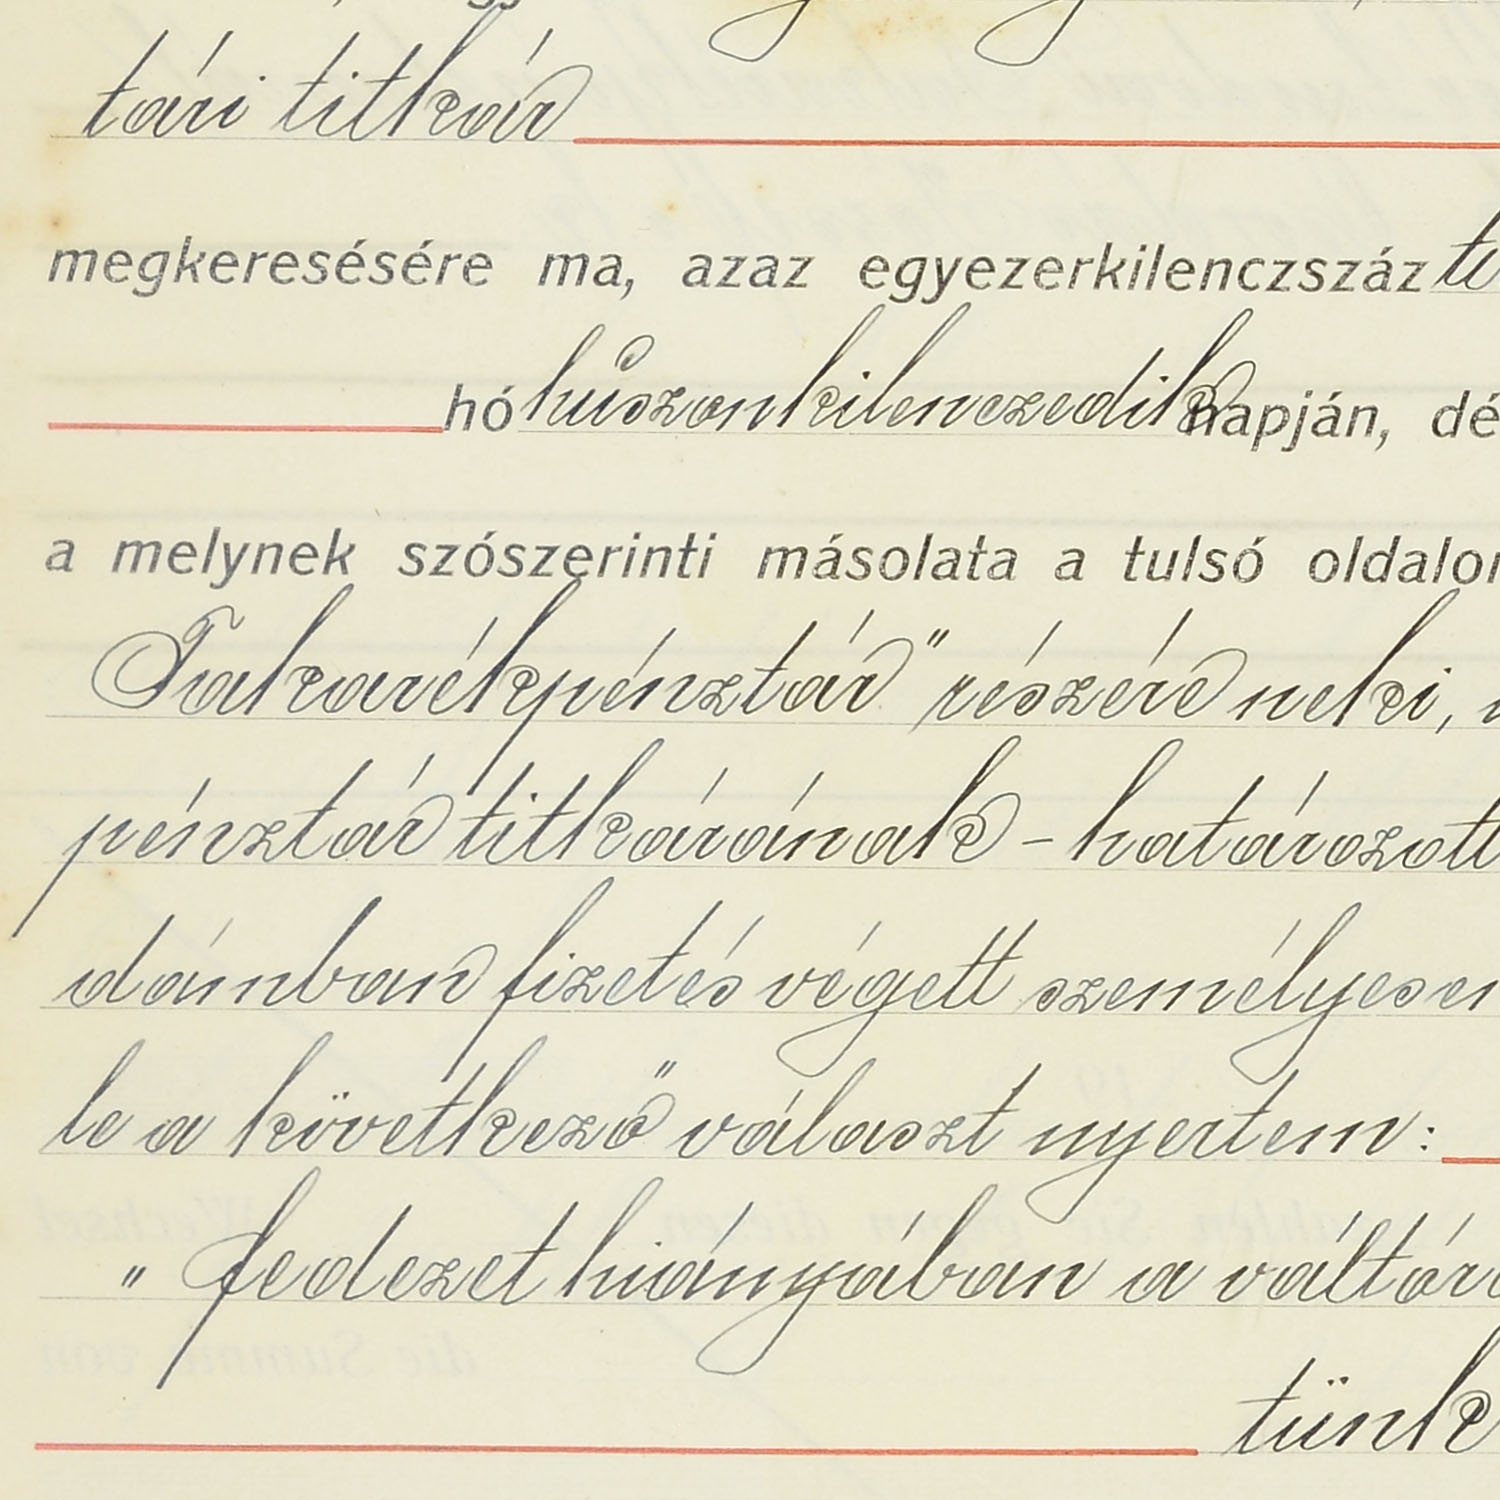 tári titkár
megkeresésére ma, azaz egyezerkilenczszáz ti
hó huszonkilenczedik napján, dé
a melynek szószerinti másolata a tulsó oldalon
Takarékpénztár" részére neki,
pénztár titkárának - határozott
dámban fizetés végett személyesen
le a következő választ nyertem:
"fedezet hiányában a váltó
tünk